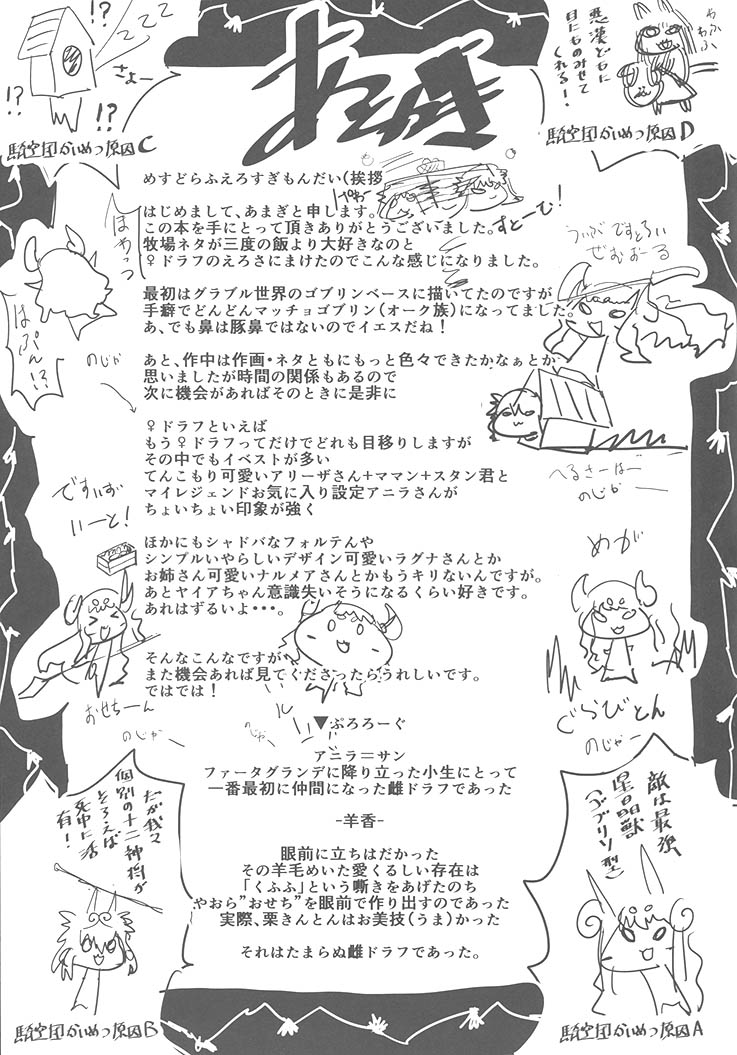 あとがき
!?
さよー
!?
!?
騎空団かいめつ原因C
悪漢どもに
目にものみせて
くれる!
騎空団かいめつ原因D
めすどらふえろすぎもんだい(挨拶
はじめまして、あまぎと申します。
この本を手にとって頂きありがとうございました。
牧場ネタが三度の飯より大好きなのと
♀ドラフのえろさにまけたのでこんな感じになりました。
すとーむ!
最初はグラブル世界のゴブリンベースに描いてたのですが
手癖でどんどんマッチョゴブリン(オーク族)になってました。
あ、でも鼻は豚鼻ではないのでイエスだね!
あと、作中は作画・ネタともにもっと色々できたかなぁとか
思いましたが時間の関係もあるので
次に機会があればそのときに是非に
のじゃ
♀ドラフといえば
もう♀ドラフってだけでどれも目移りしますが
その中でもイベストが多い
てんこもり可愛いアリーザさん+ママン+スタン君と
マイレジェンドお気に入り設定アニラさんが
ちょいちょい印象が強く
へるさーばー
のじゃー
ほかにもシャドバなフォルテんや
シンプルいやらしいデザイン可愛いラグナさんとか
お姉さん可愛いナルメアさんとかもうキリないんですが。
あとヤイアちゃん意識失いそうになるくらい好きです。
あれはずるいよ・・・。
めが
ぐらびとん
のじゃー
おせちーん
のじゃー
そんなこんなですが
また機会あれば見てくださったらうれしいです。
ではでは!
▼ぷろろーぐ
アニラ=サン
ファータグランデに降り立った小生にとって
一番最初に仲間になった雌ドラフであった
-羊香-
眼前に立ちはだかった
その羊毛めいた愛くるしい存在は
「くふふ」という嘶きをあげたのち
やおら”おせち”を眼前で作り出すのであった
実際、栗きんとんはお美技(うま)かった
それはたまらぬ雌ドラフであった。
だが我々
個別の十二神将が
そろえば
死中に活
有!
騎空団かいめつ原因B
敵は最強
星晶獣
(ゴブリン型)
騎空団かいめつ原因A